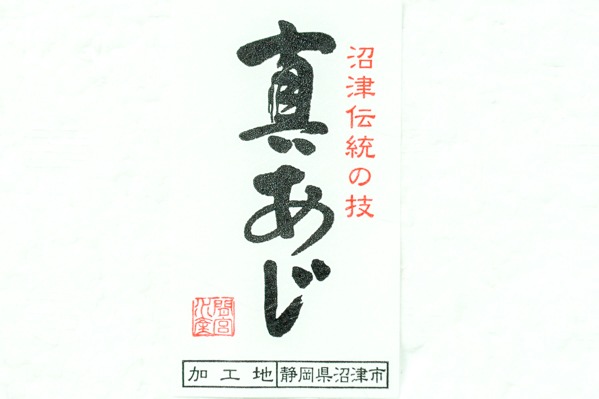 沼津伝統の技
真あじ
加工地 静岡県沼津市